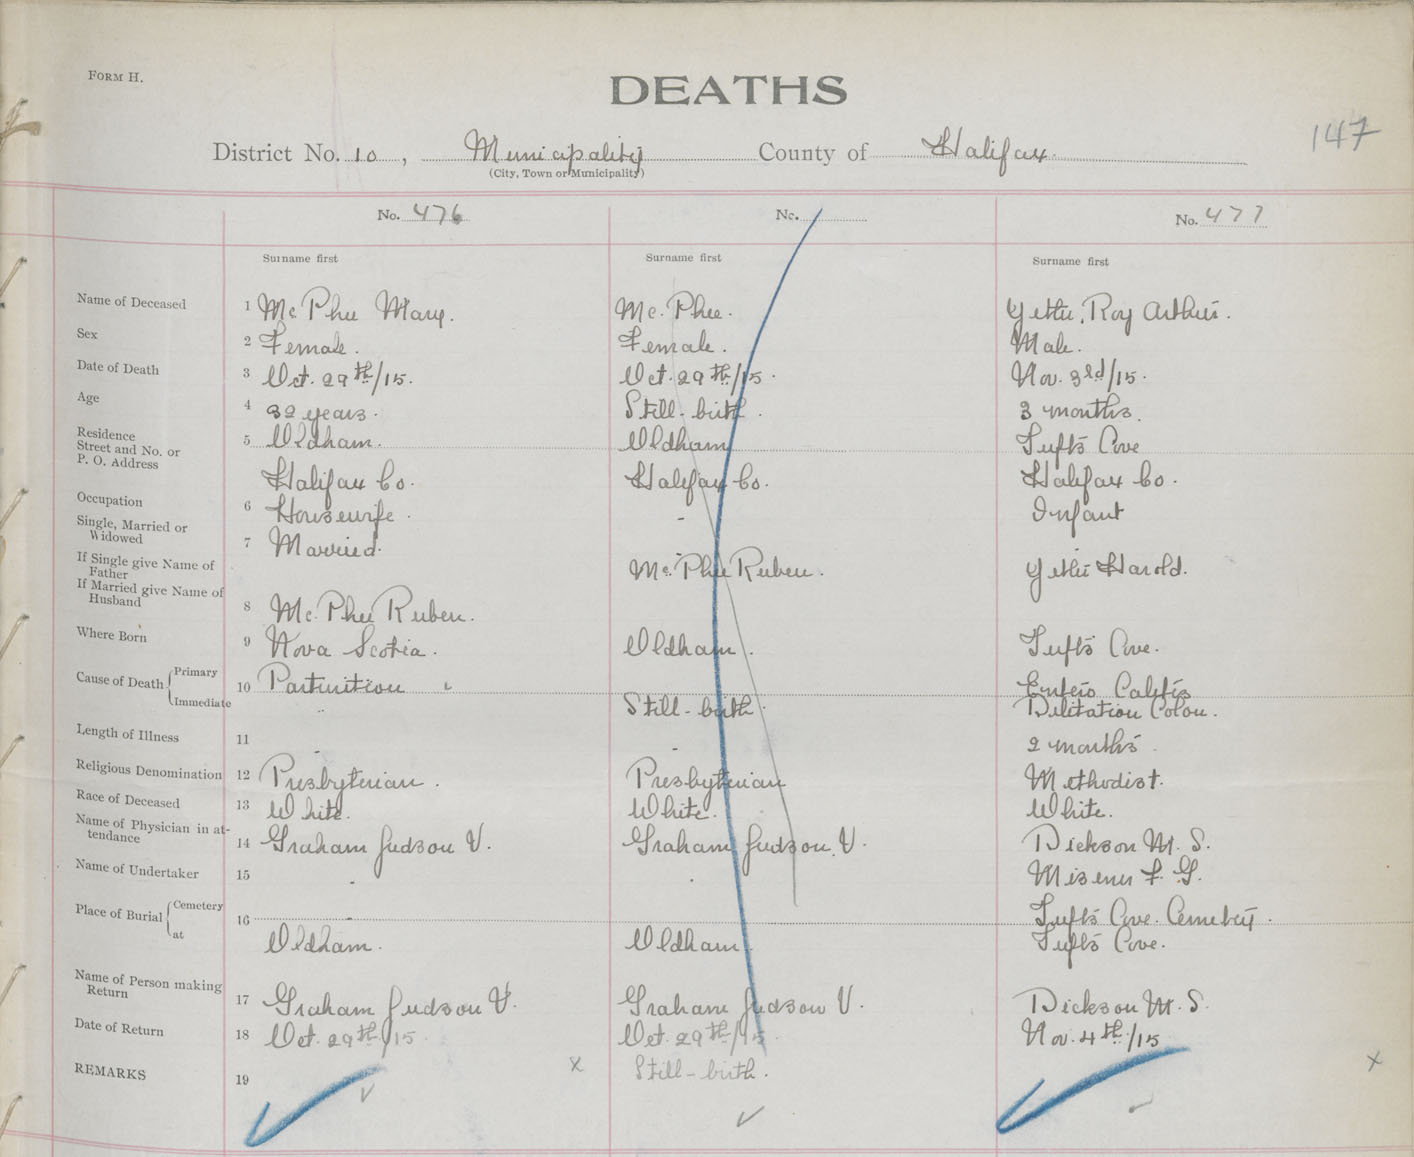 FORM H.
DEATHS
147
District No. 10, Municipality County of Halifax.
(City, Town or Municipality)
No. 476 No. No. 477
Surname first Surname first Surname first
Name of Deceased 1 Mc Phee Mary. Mc. Phee. Roy Arthur.
Sex 2 Female. Female. Male.
Date of Death 3 Oct. 29th/15. Oct. 29th/15. Nov. 3rd/15.
Age 4 32 years. Still-birth. 3 months.
Residence
Street and No. or
P. O. Address
5 Oldham. Oldham Tufts Cove
Halifax Co. Halifax Co. Halifax Co.
Occupation 6 Housewife. - Infant
Single, Married or
Widowed
7 Married.
If Single give Name of
Father
Mc. Phee Ruben. Harold.
If Married give Name of
Husband
8 Mc. Phee Ruben.
Where Born 9 Nova Scotia. Oldham. Tufts Cove.
Cause of Death { Primary
Immediate
10 Parturition Entero Colitis
Still-birth. Dilitation Colon.
Length of Illness 11 - - 2 months.
Religious Denomination 12 Presbyterian. Presbyterian Methodist.
Race of Deceased 13 White. White. White.
Name of Physician in at-
tendance
14 Graham Judson V. Graham Judson V. Dickson M. S.
Name of Undertaker 15 - - Misener F. G.
Place of Burial { Cemetery
at
16 - Tufts Cove. Cemetery.
Oldham. Oldham Tufts Cove.
Name of Person making
Return
17 Graham Judson V. Graham Judson V. Dickson M. S.
Date of Return 18 Oct. 29th/15 Oct. 29th/15 Nov. 4th/15
REMARKS 19 x Still-birth. x